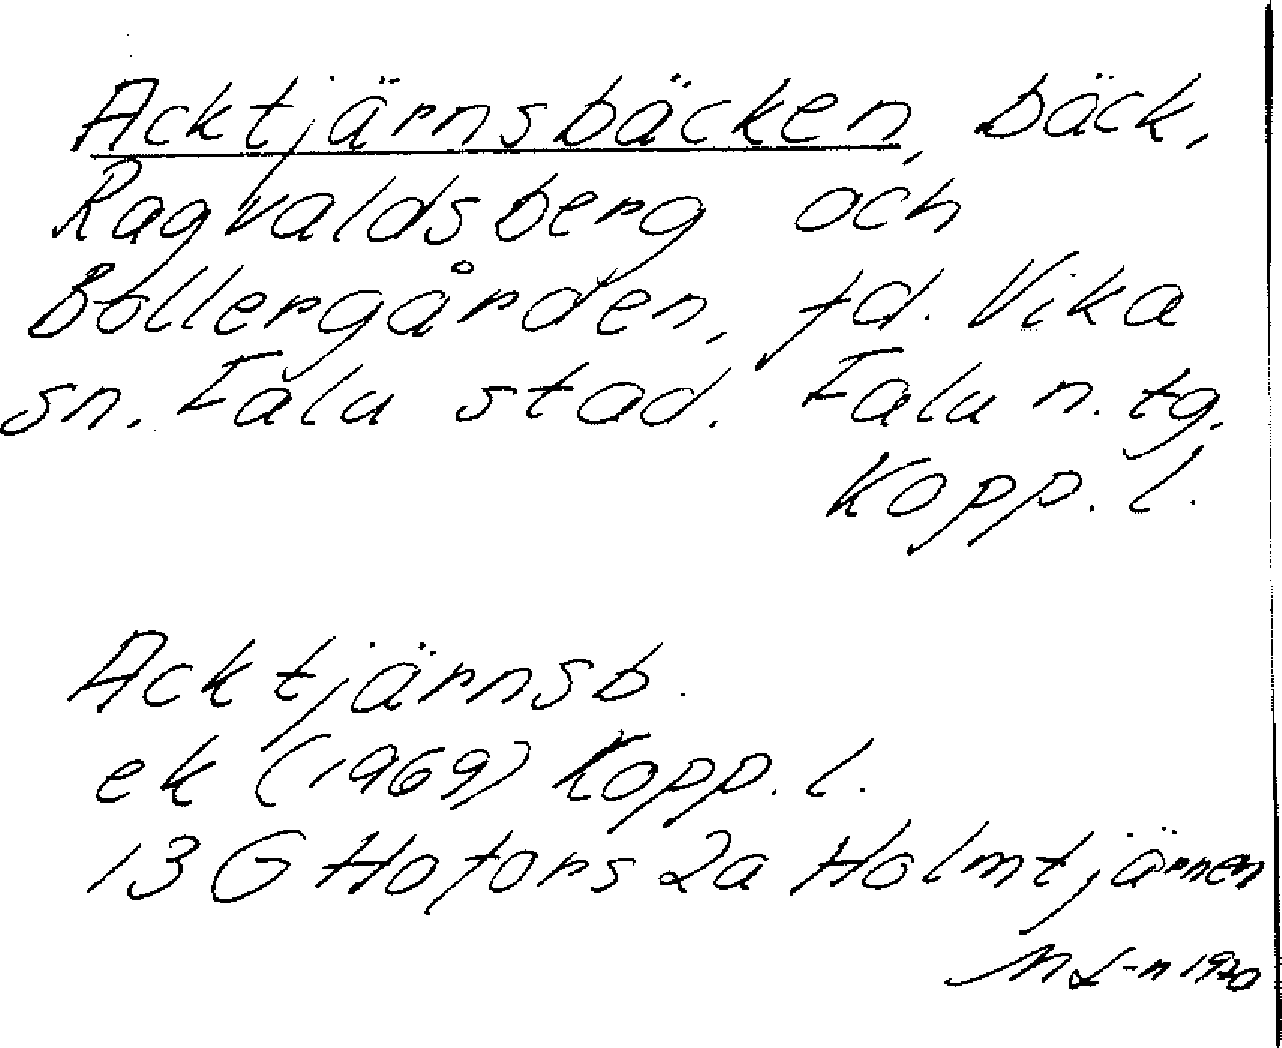 Acktjärnsbäcken, bäck,
Ragvaldsberg och
Bollergården, fd. Vika
sn. Falu stad. Falu n. tg.
Kopp. l.
Acktjärnsb.
ek (1969) Kopp. l.
13 G Hofors 2a Holmtjärnen
M L-n 1970